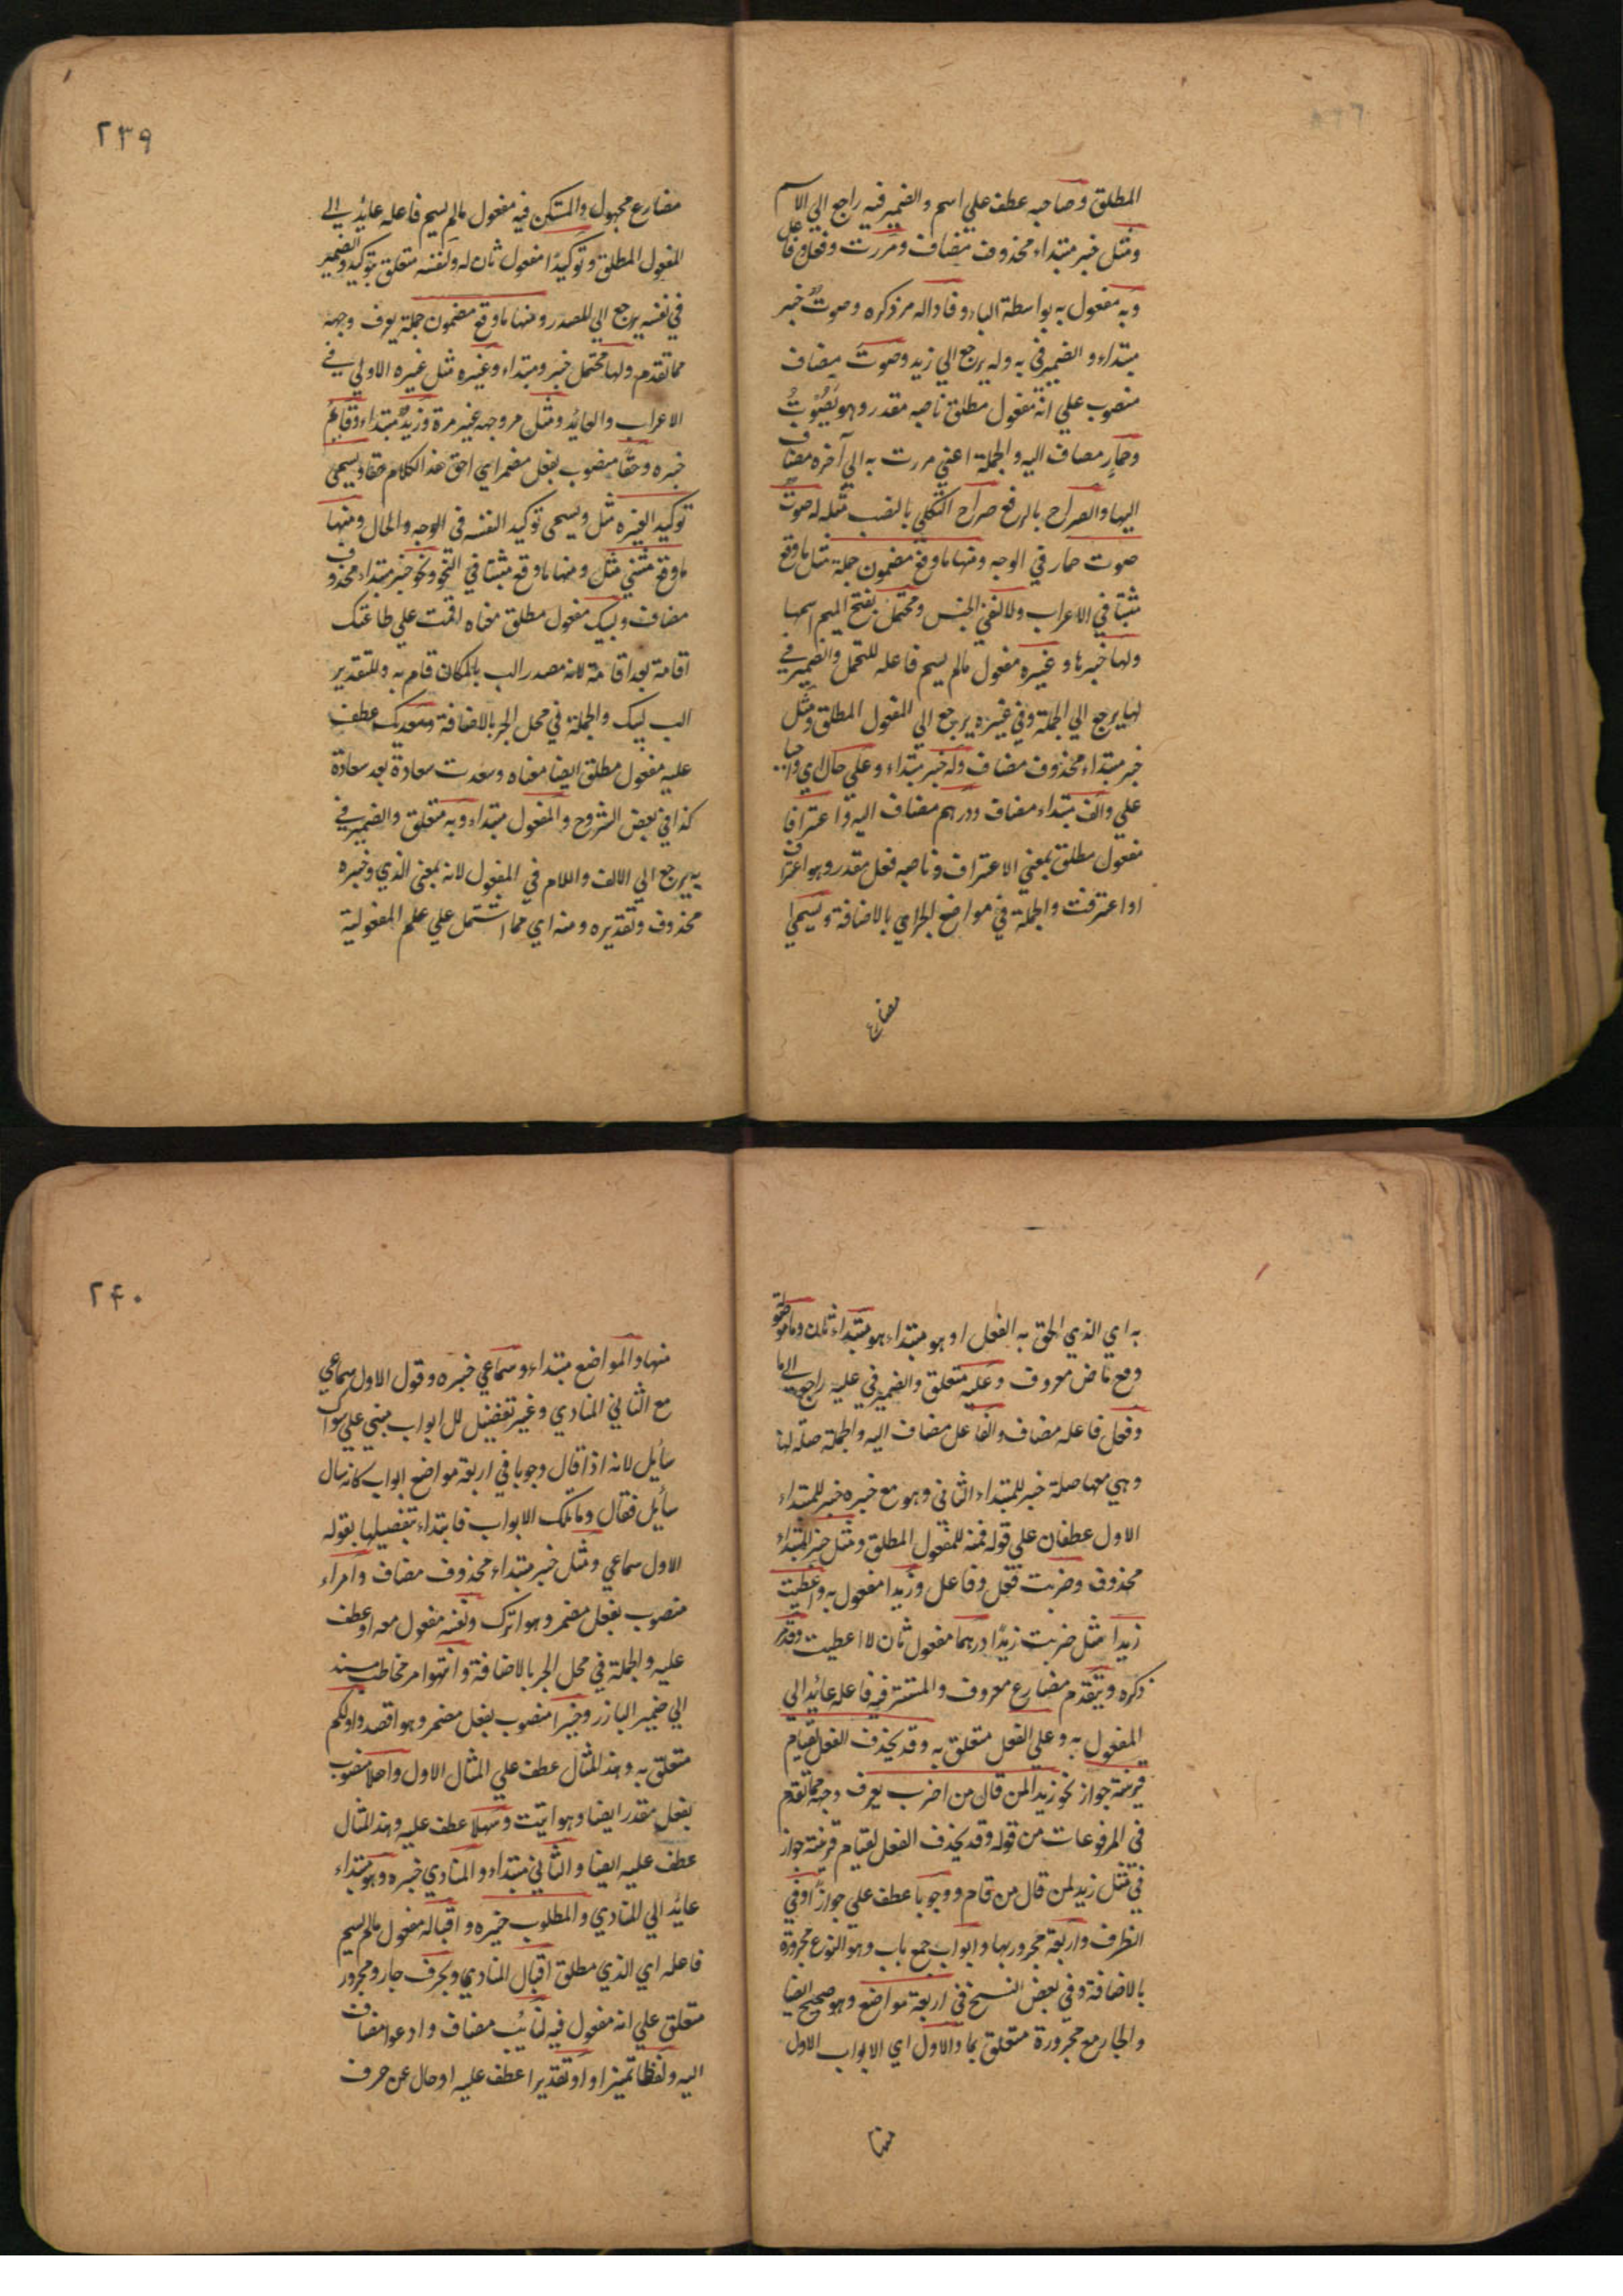 المطلق وصاحبه عطف علي اسم والضمير فيه راجع الي الاسم
ومثل خبر مبتداء محذوف مضاف ومررت وفعل وفاعل
وبه مفعول به بواسطة الباء وفاداله مر ذكره وصوت خبر
مبتداء والضمير في به وله يرجع الي زيد وصوت مضاف
منصوب علي انه مفعول مطلق ناصبه مقدر وهو يصوت
وحمار مضاف اليه والجملة اعني مررت به الي آخره مضاف
اليها والصراح بالرفع صراح الثكلي بالنصب مثله له صوت
صوت حمار في الوجه ومنها ما وقع مضمون جملة مثل ما وقع
مثبتا في الاعراب ولا لنفي الجنس ومحتمل بفتح الميم اسمها
ولها خبرها وغيره مفعول مالم يسم فاعله للتحمل والضمير في
لها يرجع الي الجملة وفي غيره يرجع الي المفعول المطلق ومثل
خبر مبتداء محذوف مضاف وله خبر مبتداء وعلي حال اي واجبا
علي والف مبتداء مضاف ودرهم مضاف اليه واعترافا
مفعول مطلق بمعني الاعتراف وناصبه فعل مقدر وهو اعترف
او اعترفت والجملة في مواضع الجر اي بالاضافة ويسمي
مضارع
٢٣٩
مضارع مجهول والمستكن فيه مفعول مالم يسم فاعله عايد الي
المفعول المطلق وتوكيدا مفعول ثان له ولنفسه متعلق بتوكيد والضمير
في نفسه يرجع الي للمصدر ومنها ما وقع مضمون جملة يعرف وجهه
مما تقدم ولها محتمل خبر ومبتداء وغيره مثل غيره الاولي في
الاعراب والعائد ومثل مر وجهه غير مرة وزيد مبتداء وقايم
خبره وحقا منصوب بفعل مضمر اي احق هذا الكلام حقا ويسمي
توكيد الغيره مثل ويسمي توكيد النفسه في الوجه والحال ومنها
ما وقع مثني مثل ومنها ما وقع مثبتا في النحو ونحو خبر مبتداء محذوف
مضاف ولبيك مفعول مطلق معناه اقمت علي طاعتك
اقامة بعد اقامة لانه مصدر الب بالمكان قام به وللتقدير
الب لبيك والجملة في محل الجر بالاضافة وسعديك عطف
عليه مفعول مطلق ايضا معناه وسعدت سعادة بعد سعادة
كذا في بعض الشروح والمفعول مبتداء وبه متعلق والضمير في
به يرجع الي الالف واللام في المفعول لانه بمعني الذي وخبره
محذوف وتقديره ومنه اي مما اشتمل علي علم المفعولية
به اي الذي الحق به الفعل او هو مبتداء هو مبتداء ثان وما
وقع ماض معروف وعليه متعلق والضمير في عليه راجع الي ما
وفعل فاعله مضاف والفاعل مضاف اليه والجملة صلة لها
وهي معها صلة خبر للمبتداء الثاني وهو مع خبره خبر للمبتداء
الاول عطفان علي قوله فمنه للمفعول المطلق ومثل خبر المبتداء
محذوف وضربت فعل وفاعل وزيدا مفعول به واعطيت
زيدا مثل ضربت زيدا درهما مفعول ثان لا اعطيت وقد مر
ذكره ويتقدم مضارع معروف والمستتر فيه فاعله عائد الي
المفعول به وعلي الفعل متعلق به وقد يحذف الفعل لقيام
قرينة جواز نحو زيدا لمن قال من اضرب يعرف وجهه مما تقدم
في المرفوعات من قوله وقد يحذف الفعل لقيام قرينة جواز
في مثل زيد لمن قال من قام ووجوبا عطف علي جوازا وفي
الظرف واربعة مجرور بها وابواب جمع باب وهو النوع مجرورة
بالاضافة وفي بعض النسخ في اربعة مواضع وهو صحيح ايضا
والجار مع مجرورة متعلق بما والاول اي الابواب الاول
منها
٢٤٠
منها والمواضع مبتداء وسماعي خبره وقول الاول سماعي
مع الثاني المنادي وغير تفضيل لل ابواب مبني علي سوال
سائل لانه اذا قال وجوبا في اربعة مواضع ابواب كانه سال
سائل فقال وما تلك الابواب فابتداء بتفصيلها بقوله
الاول سماعي ومثل خبر مبتداء محذوف مضاف وامراء
منصوب بفعل مضمر وهو اترك ونفسه مفعول معه او عطف
عليه والجملة في محل الجر بالاضافة وانتهوا امر مخاطب مسند
الي ضمير البارز وخيرا منصوب بفعل مضمر وهو اقصد واولكم
متعلق به وهذ المثال عطف علي المثال الاول واهلا منصوب
بفعل مقدر ايضا وهو اتيت وسهلا عطف عليه وهذ المثال
عطف عليه ايضا والثاني مبتداء والمنادي خبره وهو مبتداء
عائد الي المنادي والمطلوب خبره واقباله مفعول مالم يسم
فاعله اي الذي مطلق اقبال المنادي وبحرف جار ومجرور
متعلق علي انه مفعول فيه نايب مضاف وادعوا مضاف
اليه ولفظا تميز او او تقديرا عطف عليه او حال عن حرف